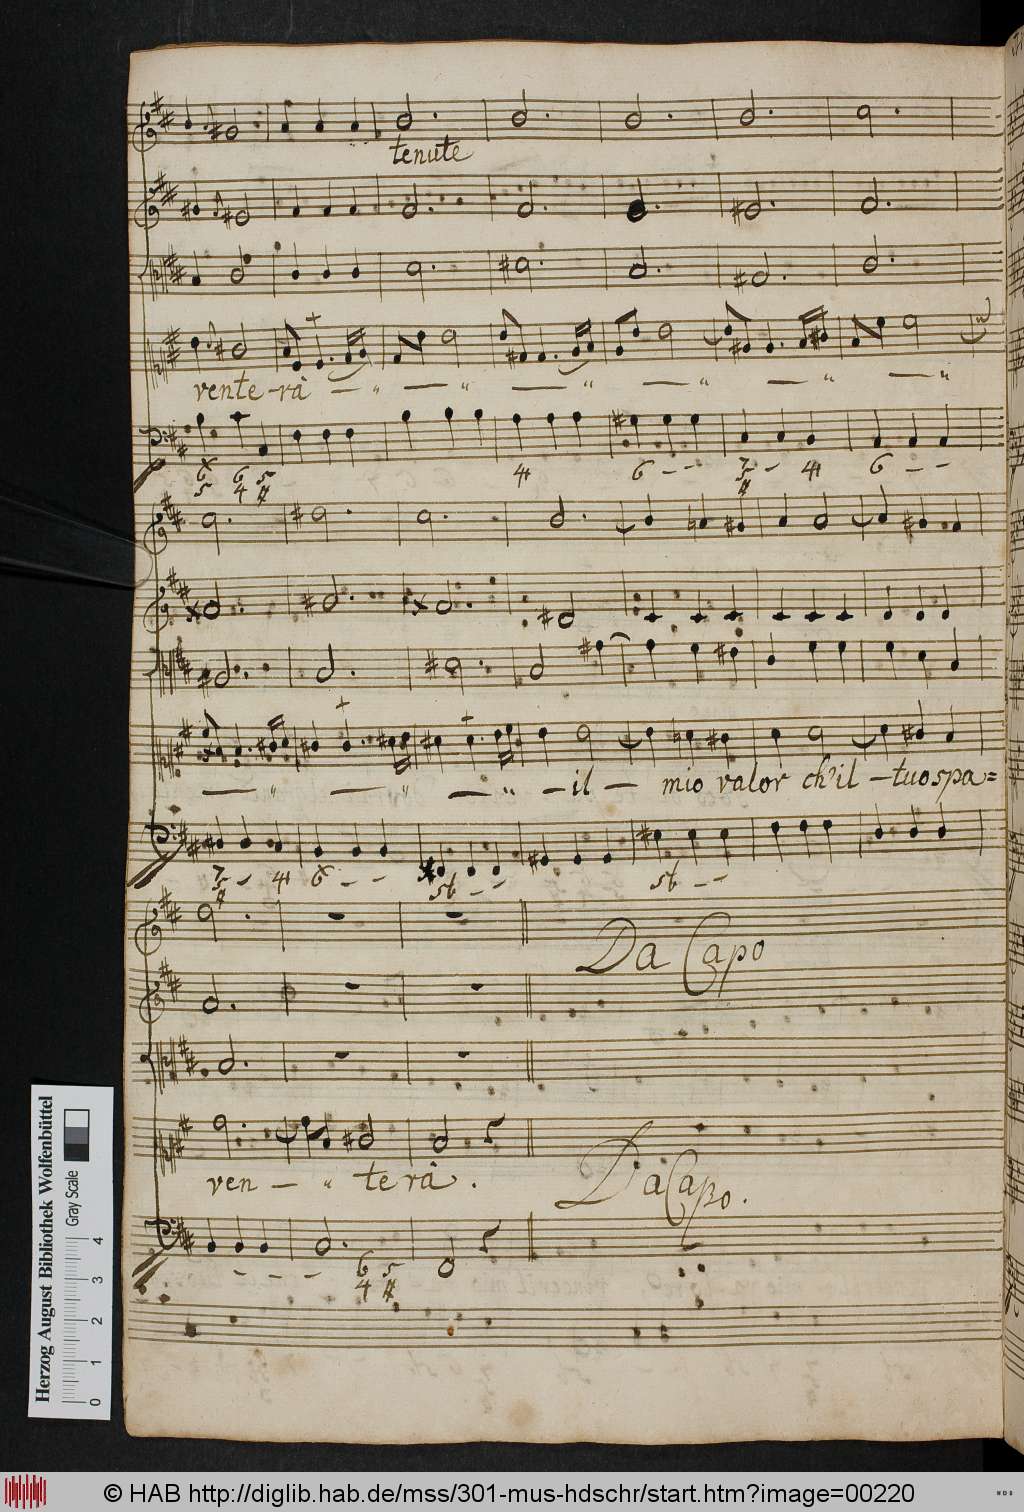 tenute
vente-rà — „ — „ — „ — „ — „ — „
6 6 5
5 4 #
4
6 - -
7 - 4
5
#
6 - -
— „ — „ — „ - il — mio valor ch'il - tuo spa=
7 - 4
5
#
6 - -
5b - -
5b - -
Da Capo
ven — „ te rà.
Da Capo.
- - -
6 5
4 #
Herzog August Bibliothek Wolfenbüttel
Gray Scale
0 1 2 3 4
© HAB http://diglib.hab.de/mss/301-mus-hdschr/start.htm?image=00220